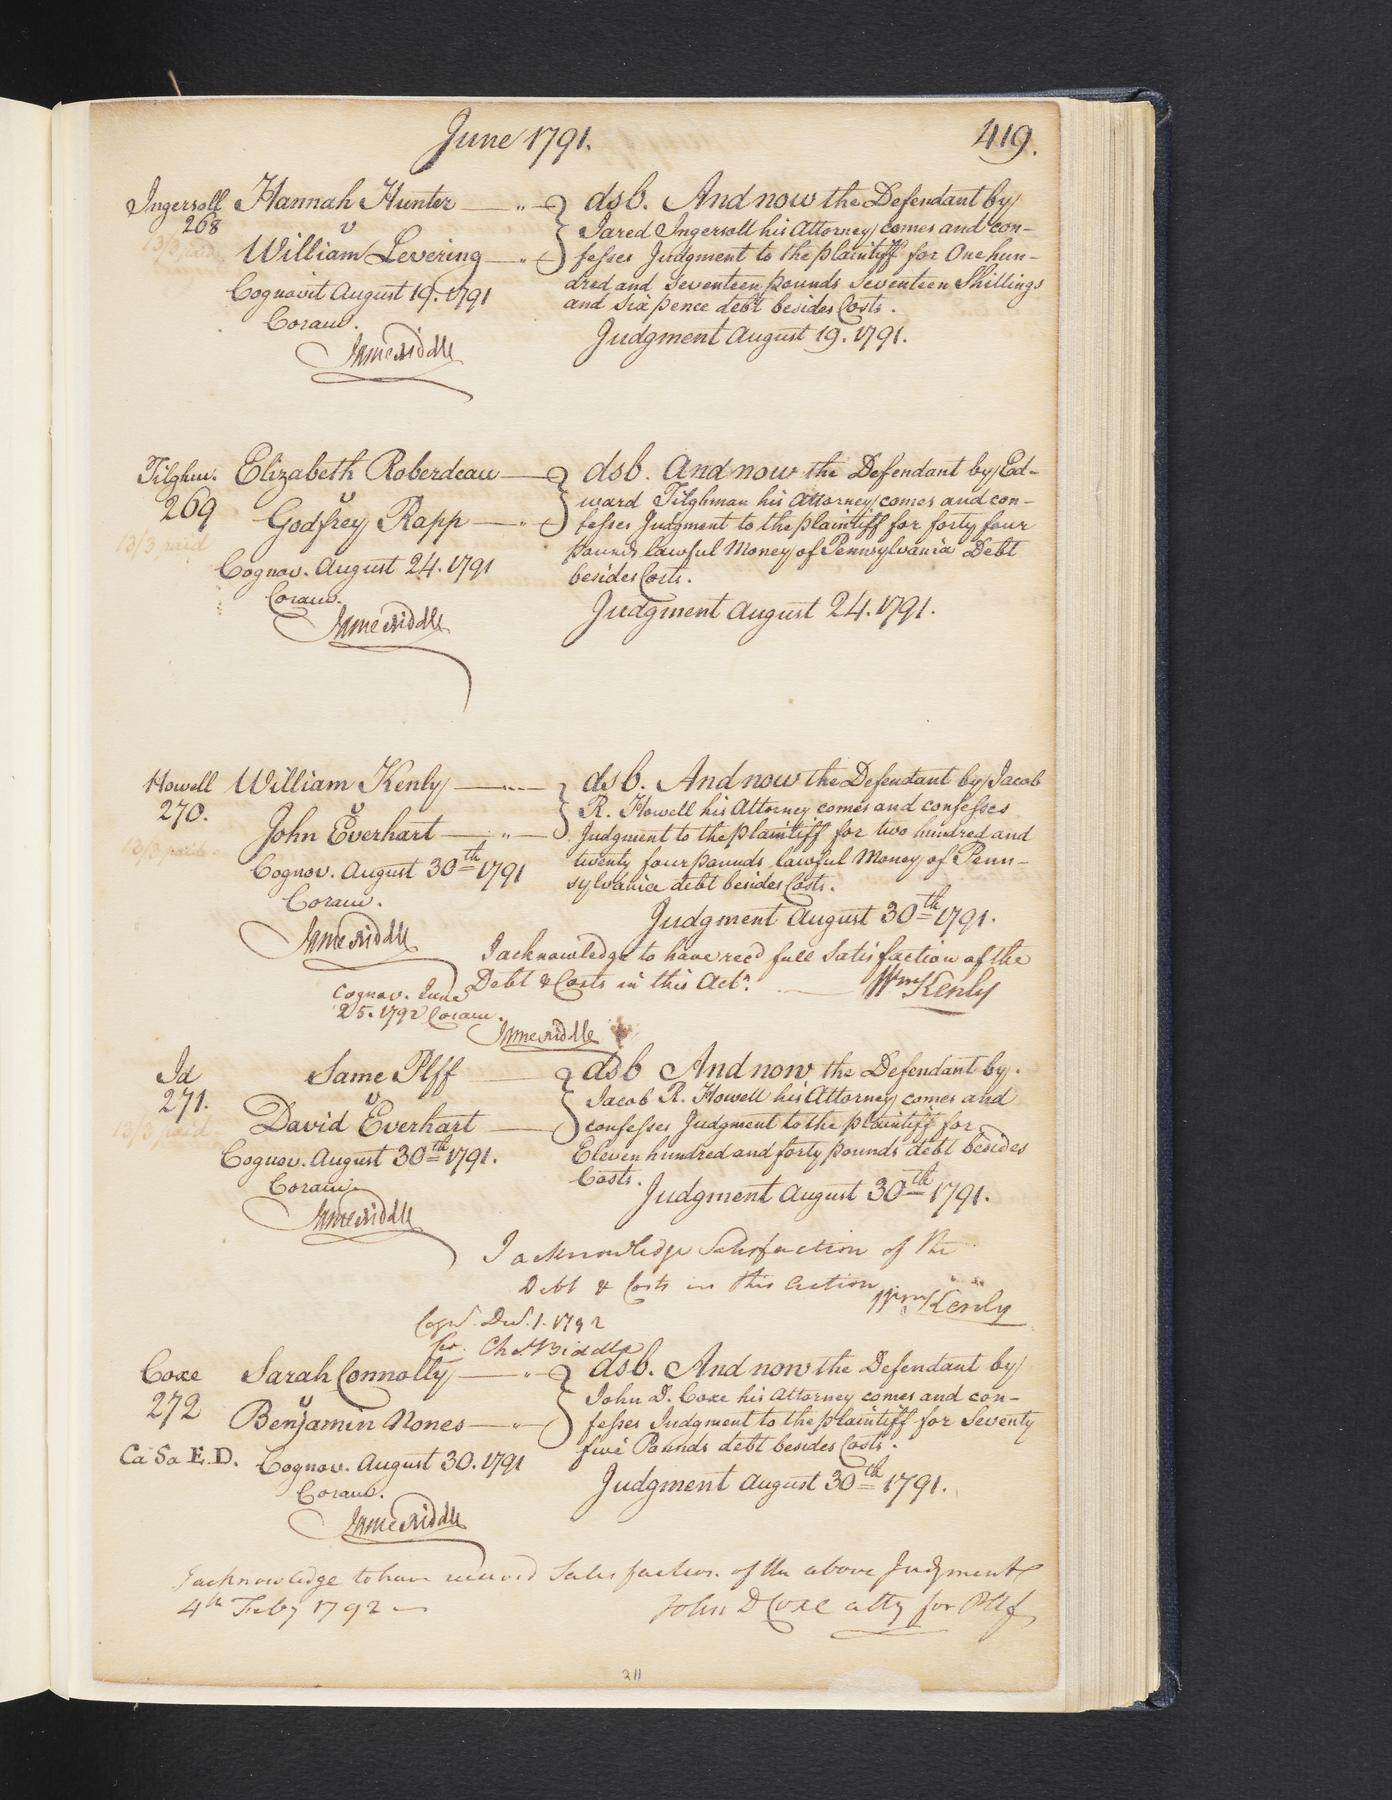 June 1791.
419.
Ingersoll
268
13/3 paid
Hannah Hunter
v
William Levering
Cognovit August 19. 1791
Coram.
Jame Riddle
dsb. And now the Defendant by
Jared Ingersoll his Attorney comes and con-
fesses Judgment to the plaintiff for One hun-
dred and seventeen pounds seventeen Shillings
and six pence debt besides Costs.
Judgment August 19. 1791.
Tilghm.
269
13/3 paid
Elizabeth Roberdeau
v
Godfrey Rapp
Cognov. August 24. 1791
Coram.
Jame Riddle
dsb. And now the Defendant by Ed-
ward Tilghman his Attorney comes and con-
fesses Judgment to the plaintiff for forty four
pounds lawful Money of Pennsylvania Debt
besides Costs.
Judgment August 24. 1791.
Howell
270.
13/3 paid
William Kenly
v
John Everhart
Cognov. August 30th 1791
Coram.
Jame Riddle
dsb. And now the Defendant by Jacob
R. Howell his Attorney comes and confesses
Judgment to the plaintiff for two hundred and
twenty four pounds lawful Money of Penn-
sylvania debt besides Costs.
Judgment August 30th 1791.
I acknowledge to have recd full Satisfaction of the
Debt & Costs in this Actn.
Wm Kenly
Cognov. June
25. 1792 Coram.
Jame Riddle
Id
271.
13/3 paid
Same Plff
v
David Everhart
Cognov. August 30th 1791.
Coram
Jame Riddle
dsb And now the Defendant by
Jacob R. Howell his Attorney comes and
confesses Judgment to the plaintiff for
Eleven hundred and forty pounds debt besides
Costs.
Judgment August 30th 1791.
I acknowledge Satisfaction of the
Debt & Costs in this action
Wm Kenly
Cogn. Dec. 1. 1792
Cor. Chs. Biddle
Coxe
272
Ca Sa E.D.
Sarah Connolly
v
Benjamin Nones
Cognov. August 30. 1791
Coram.
Jame Riddle
dsb. And now the Defendant by
John D. Coxe his Attorney comes and con-
fesses Judgment to the plaintiff for Seventy
five Pounds debt besides Costs.
Judgment August 30th 1791.
I acknowledge to have received Satisfaction of the above Judgment
4th Feby 1792
John D Coxe atty for Pltf
211